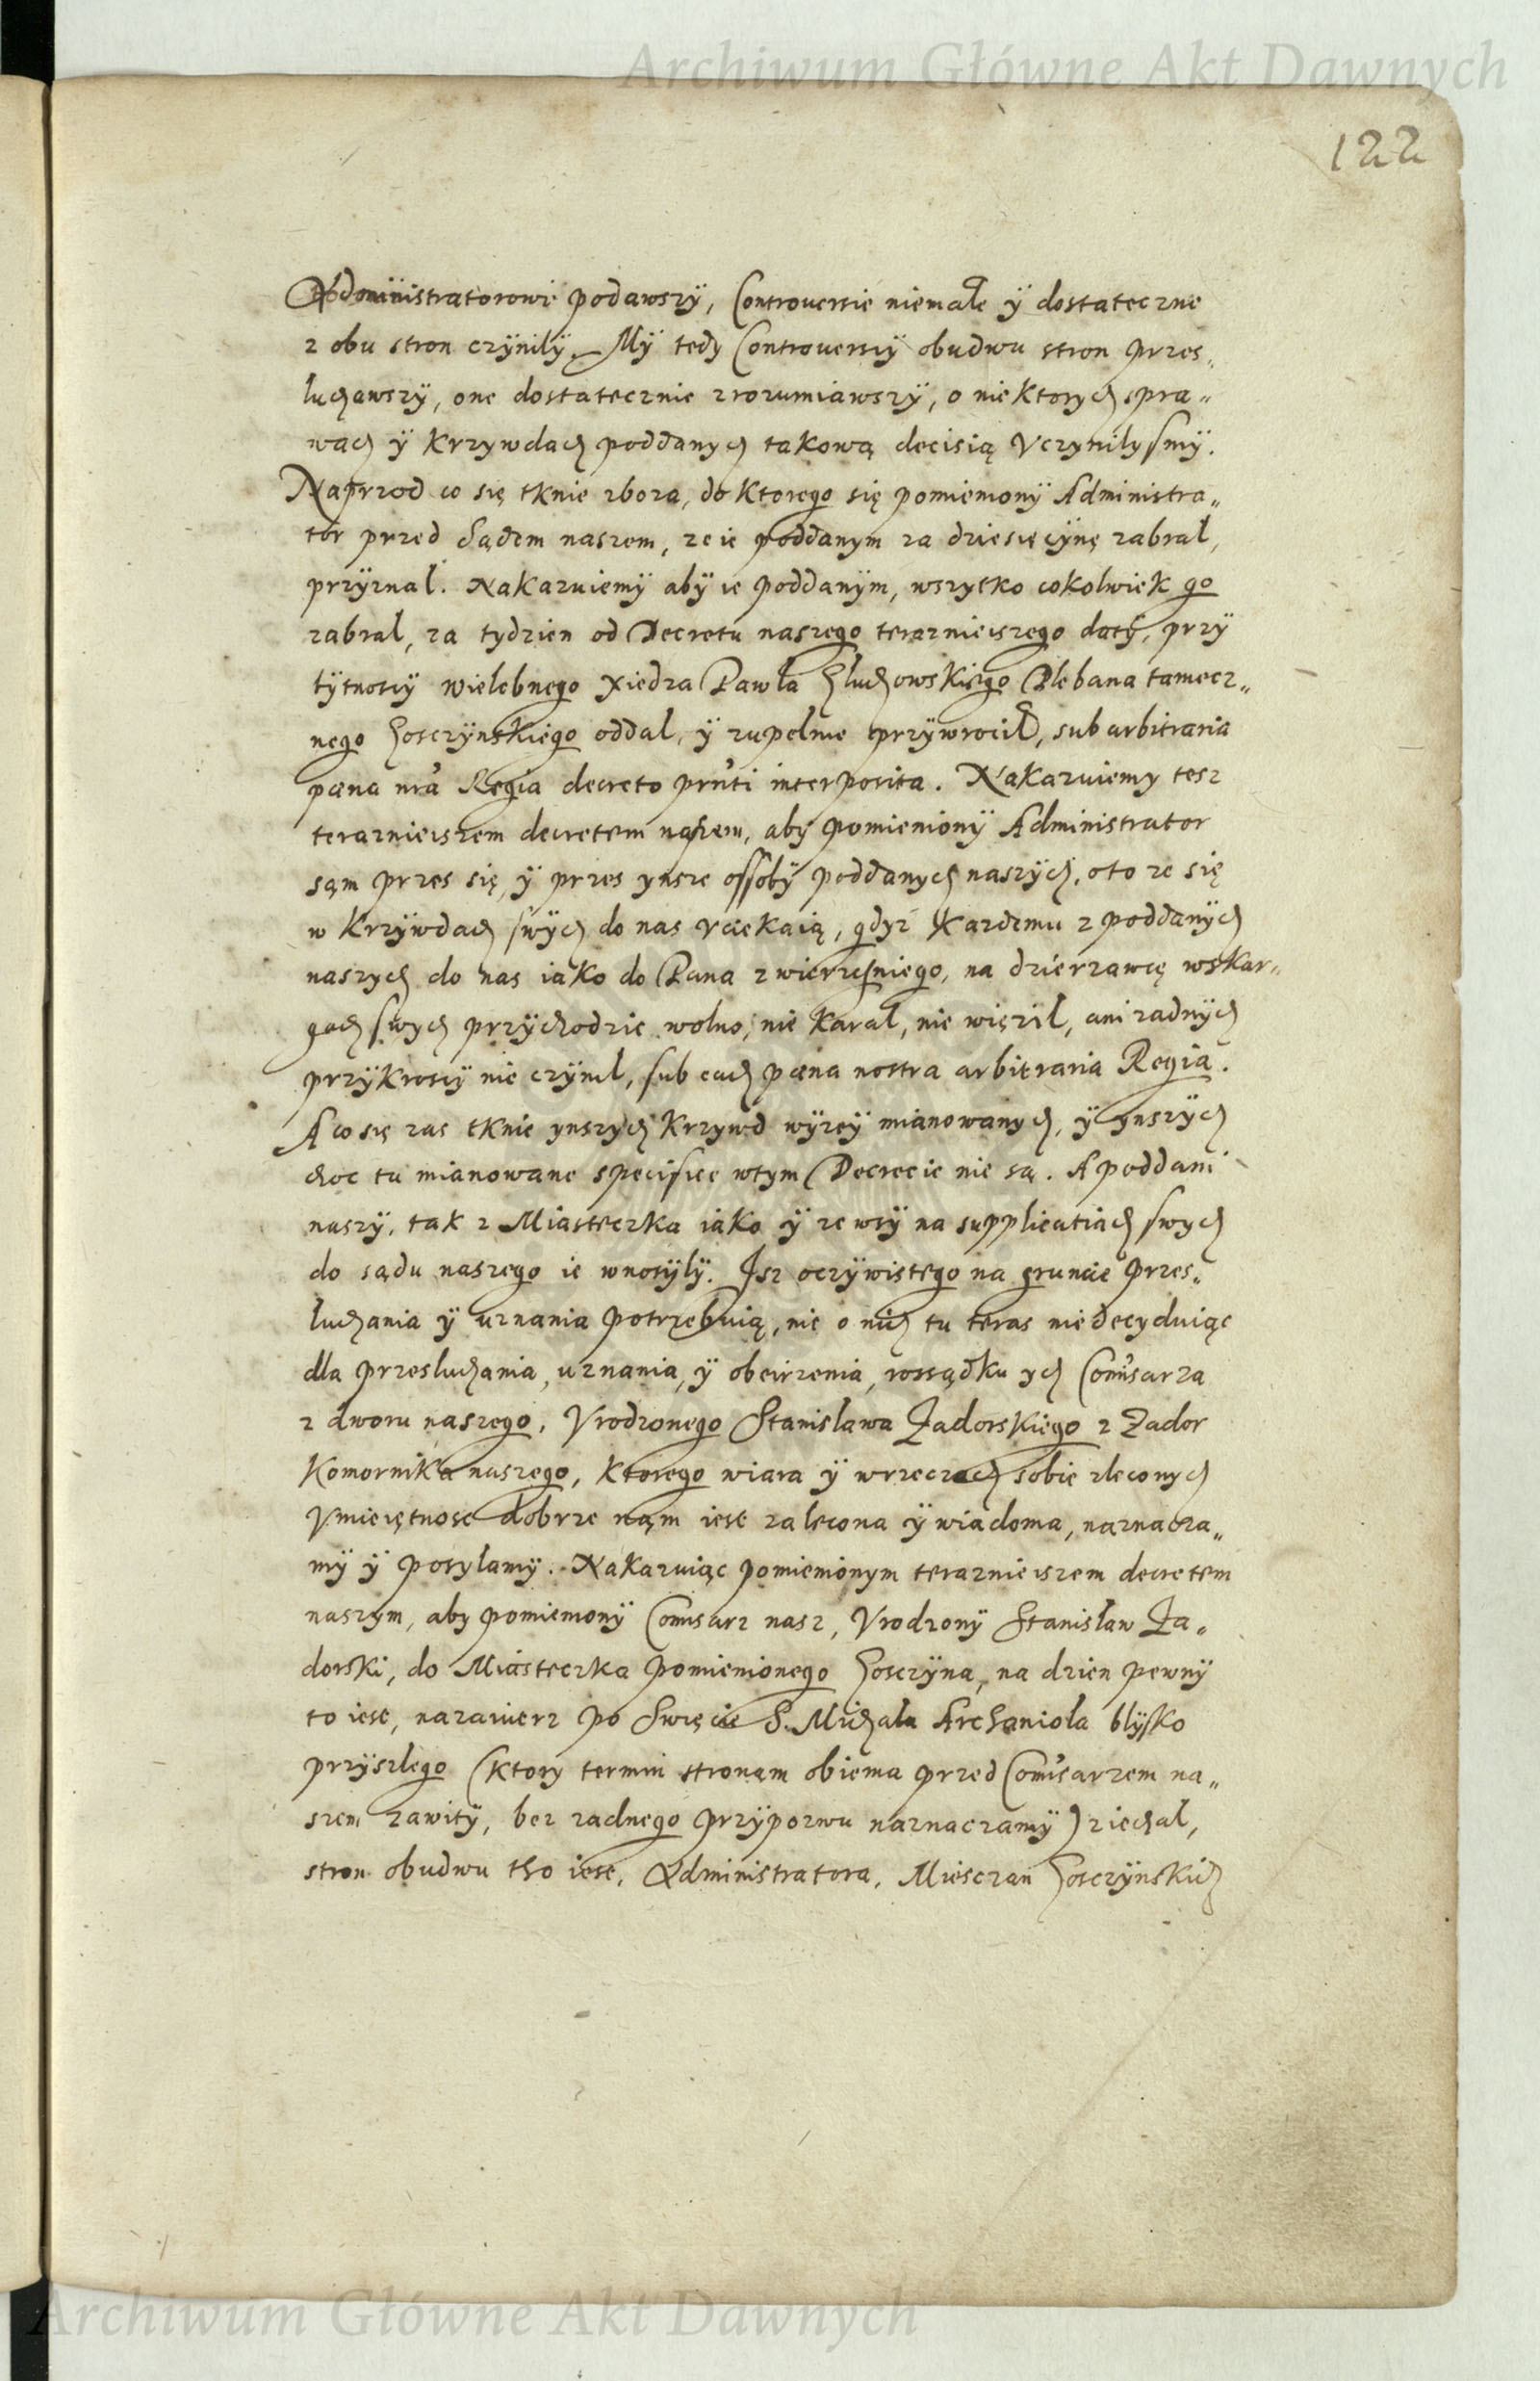 Archiwum Główne Akt Dawnych
122
Administratorowi podawszÿ, Controuersie niemałe ÿ dostateczne
z obu stron czÿnilÿ. Mÿ tedy Controuersiÿ obudwu stron przes„
luchawszÿ, one dostatecznie zrozumiawszÿ, o niektorych spra„
wach ÿ krzywdach poddanych takową decisią Vczynilysmÿ.
Naprzod co się tknie zboza, do ktorego się pomienionÿ Administra„
tor przed Sądem naszem, ze ie poddanym za dziesięcÿnę zabral,
przÿznal. Nakazuiemÿ abÿ ie poddanÿm, wszytko cokolwiek go
zabral, za tydzien od Decretu naszego terazniejszego datÿ, przÿ
bÿtnosciÿ wielebnego Xiedza Pawła Gluchowskiego Plebana tamecz„
nego Goszczÿnskiego oddal, ÿ zupelnie przÿwrocil, sub arbitraria
pœna nra Regia decreto prnti interposita. Nakazuiemy tesz
terazniejszem decretem naszem, abÿ pomienionÿ Administrator
sąm przes się, ÿ przes ynsze ossobÿ poddanych naszÿch, o to ze się
w krzÿwdach swÿch do nas vciekaią, gdyz kazdemu z poddanÿch
naszych do nas iako do Pana zwierzchniego, na dzierzawcę w skar„
gach swych przÿchodzic wolno, nie karal, nie więzil, ani zadnÿch
przÿkrosciÿ nie czÿnil, sub eadem pœna nostra arbitraria Regia.
A co się zas tknie ynszych krzÿwd wÿzeÿ mianowanych, ÿ ynszÿch
choc tu mianowane specifice w tym Decrecie nie są. A poddani
naszÿ, tak z Miasteczka iako ÿ ze wsÿ na supplicatiach swych
do sądu naszego ie wnosÿlÿ. Isz oczÿwistego na gruncie przes„
luchania ÿ uznania potrzebuią, nic o nich tu teras nie decyduiąc
dla przesluchania, uznania, ÿ obeirzenia, rossądku ych Comisarza
z dworu naszego, Vrodzonego Stanislawa Zadorskiego z Zador
Komornika naszego, ktorego wiara ÿ w rzeczach sobie zleconych
Vmieiętnosc dobrze nąm iest zalecona ÿ wiadoma, naznacza„
mÿ ÿ posylamÿ. Nakazuiąc pomienionym terazniejszem decretem
naszym, aby pomienionÿ Comisarz nasz, Vrodzonÿ Stanisław Za„
dorski, do Miasteczka pomienionego Goszczÿna, na dzien pewnÿ
to iest, nazaiuerz po Swięcie S. Michała Archaniola blÿsko
przÿszlego (ktory termin stronąm obiema przed Comisarzem na„
szem zawitÿ, bez zadnego przÿpozwu naznaczamÿ) ziechal,
stron obudwu tho iest, Administratora, Miesczan Goszczÿnskich
Archiwum Główne Akt Dawnych